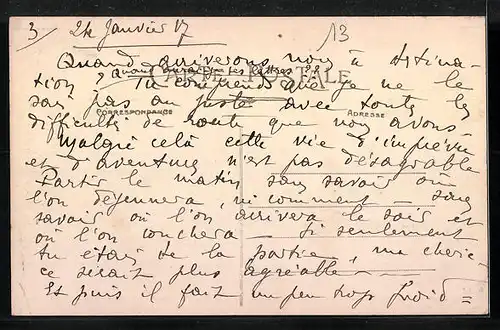 3/ 24 Janvier 17 13
Quand arriverons nous à destina-
tion ? Tu comprends que je ne le
CARTE POSTALE
sais pas au juste avec toutes les
CORRESPONDANCE ADRESSE
difficultés de route que nous avons -
Malgré celà cette vie d'imprévu
et d'aventures n'est pas désagréable
Partir le matin sans savoir où
l'on déjeunera, ni comment - sans
savoir où l'on arrivera le soir et
où l'on couchera - Si seulement
tu étais de la partie, ma chérie
ce serait plus agréable -
Et puis il fait un peu trop froid =